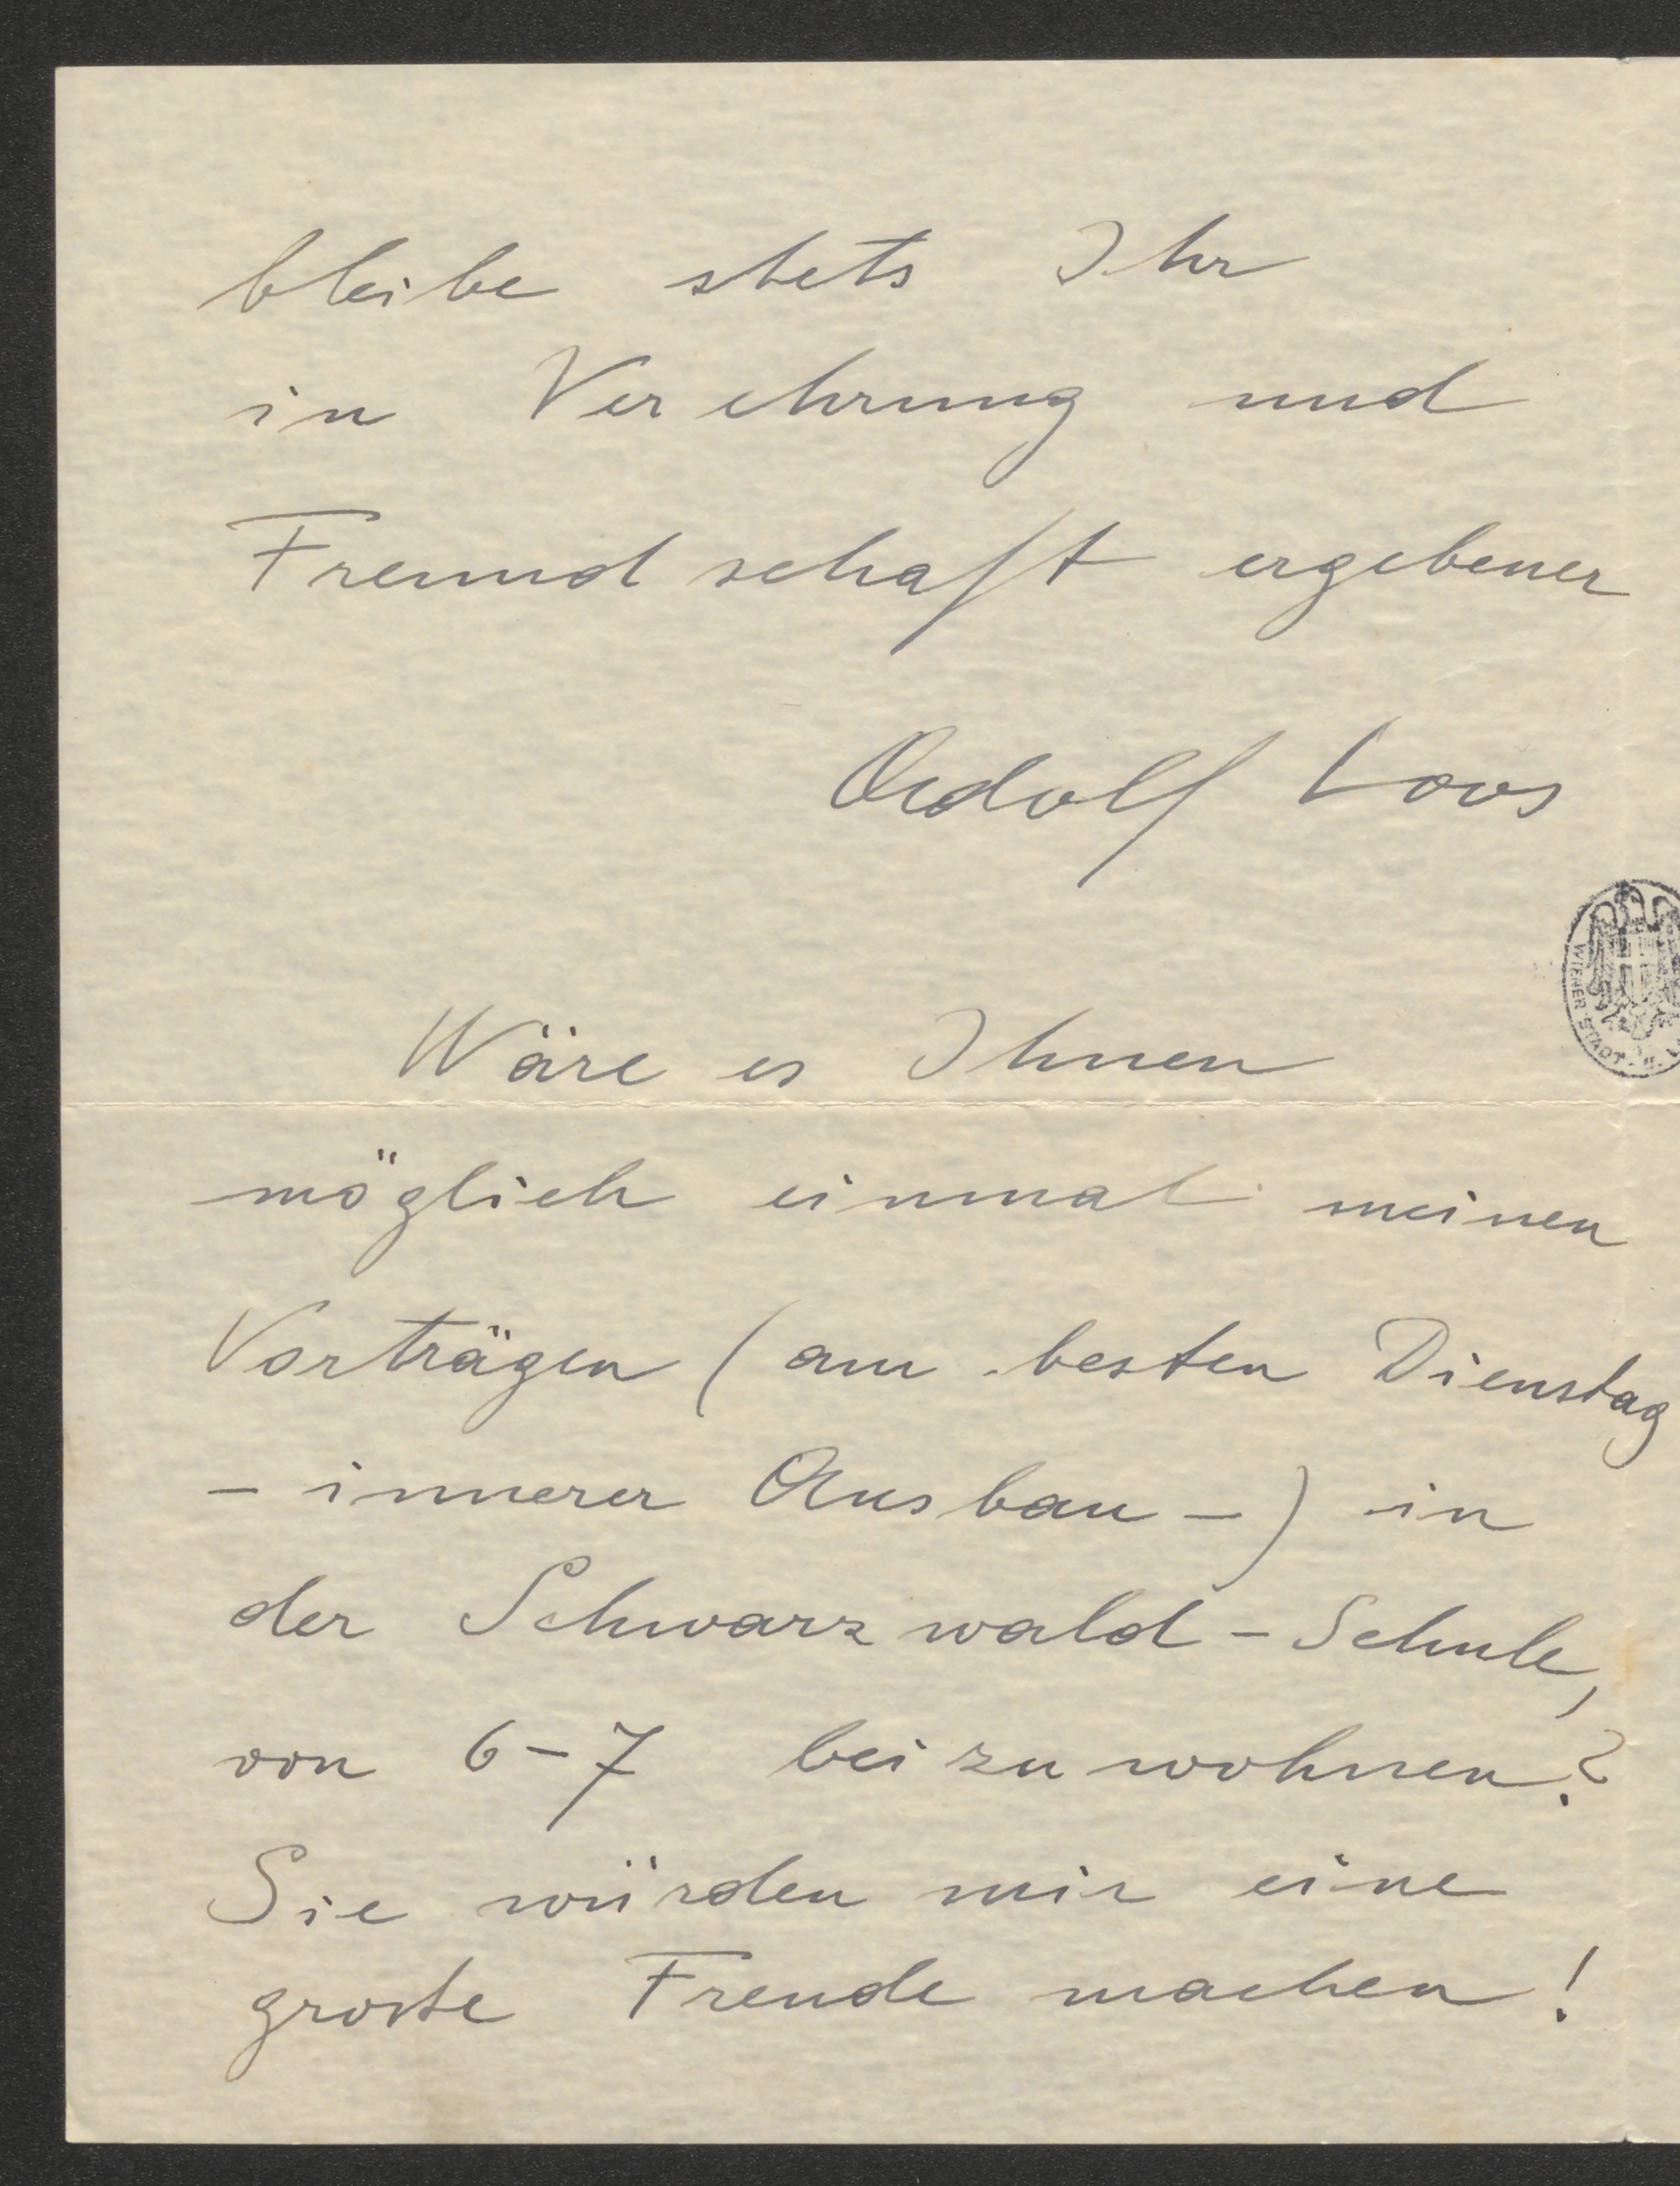 bleibe stets Ihr
in Verehrung und
Freundschaft ergebener
Adolf Loos
WIENER STADT- U. L
Wäre es Ihnen
möglich einmal meinen
Vorträgen (am besten Dienstag
– innerer Ausbau –) in
der Schwarzwald-Schule,
von 6–7 beizuwohnen?
Sie würden mir eine
große Freude machen!